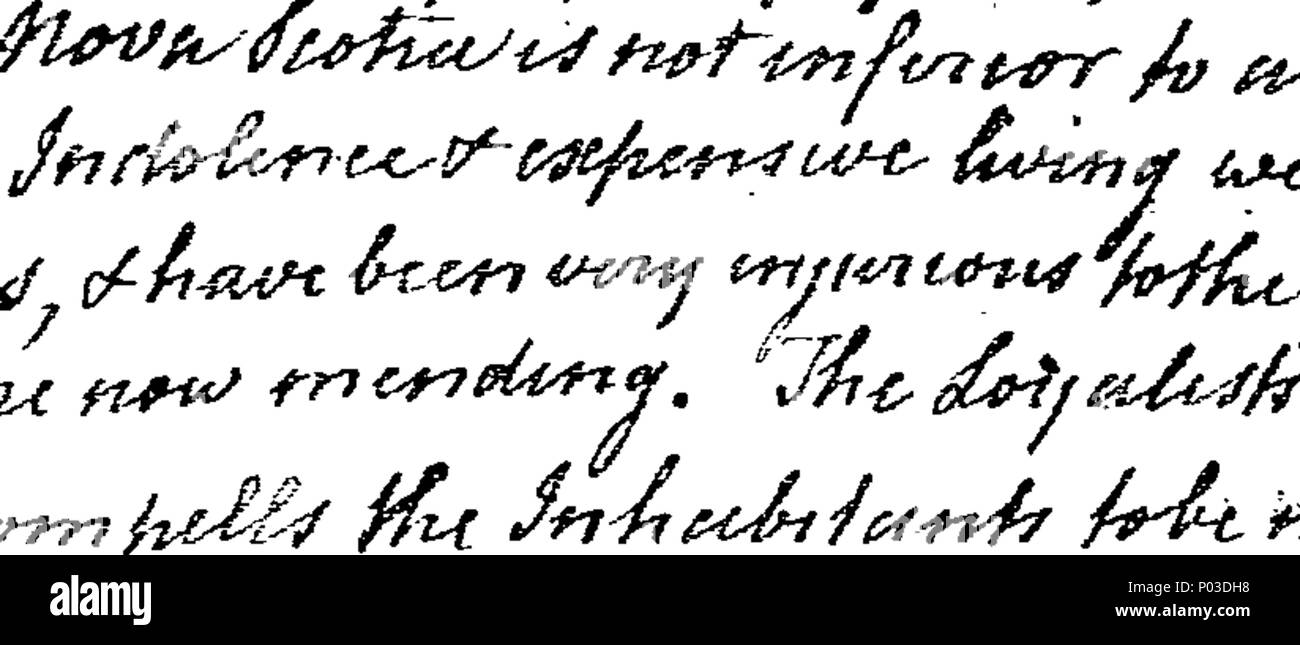 Nova Scotia is not inferior to
Indolence & expensive living
s, & have been very injurious to the
now mending. The Loyalists
ompells the Inhabitants to be
a alamy
alamy
Image ID: P03DH8
www.alamy.com